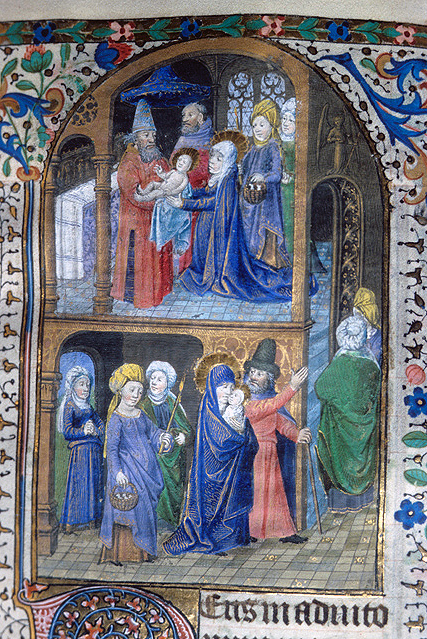 Eus in adiuto